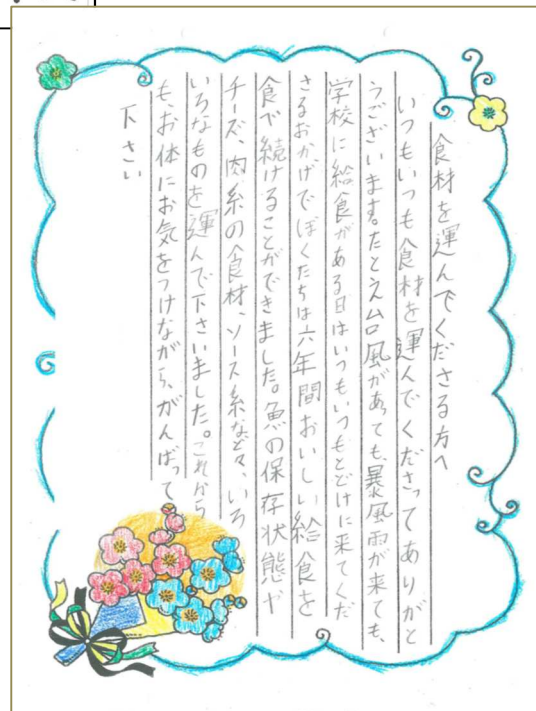 食材を運んでくださる方へ
いつもいつも食材を運んでくださってありがと
うございます。たとえ台風があっても、暴風雨が来ても、
学校に給食がある日はいつもいつもとどけに来てくだ
さるおかげでぼくたちは六年間おいしい給食を
食べ続けることができました。魚の保存状態や
チーズ、肉系の食材、ソース系など々、いろ
いろなものを運んで下さいました。これから
も、お体にお気をつけながら、がんばって
下さい